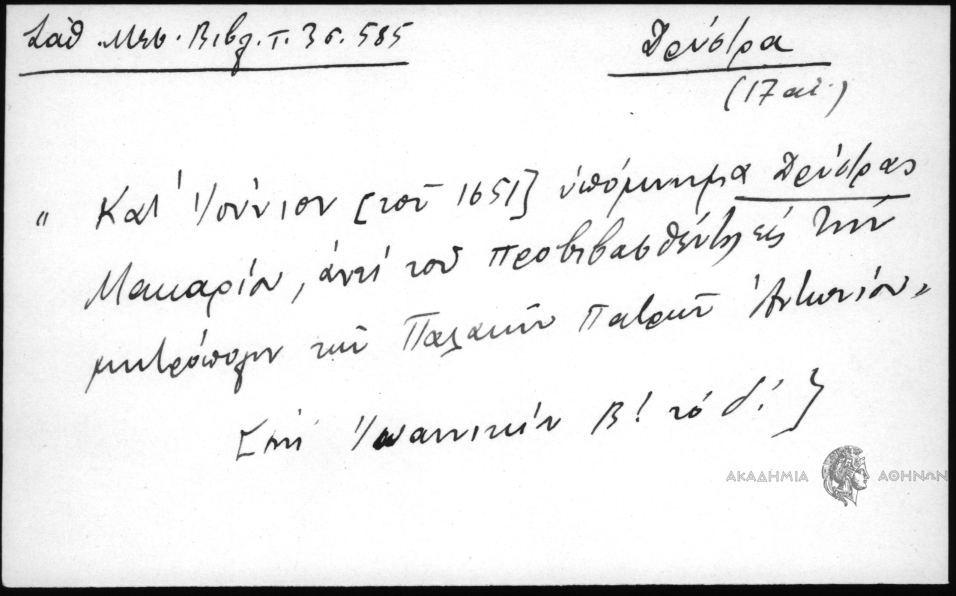 Σάθ. Μεσ. Βιβλ. τ. 3 σ. 585
Δρύστρα
(17 αἰ.)
"Κατ' Ἰούνιον [τοῦ 1651] ὑπόμνημα Δρύστρας
Μακαρίου, ἀντί τοῦ προβιβασθέντος εἰς τήν
μητρόπολιν τῶν Παλαιῶν Πατρῶν Ἀντωνίου"
[ἐπί Ἰωαννικίου Β! τό δ!]
ΑΚΑΔΗΜΙΑ ΑΘΗΝΩΝ